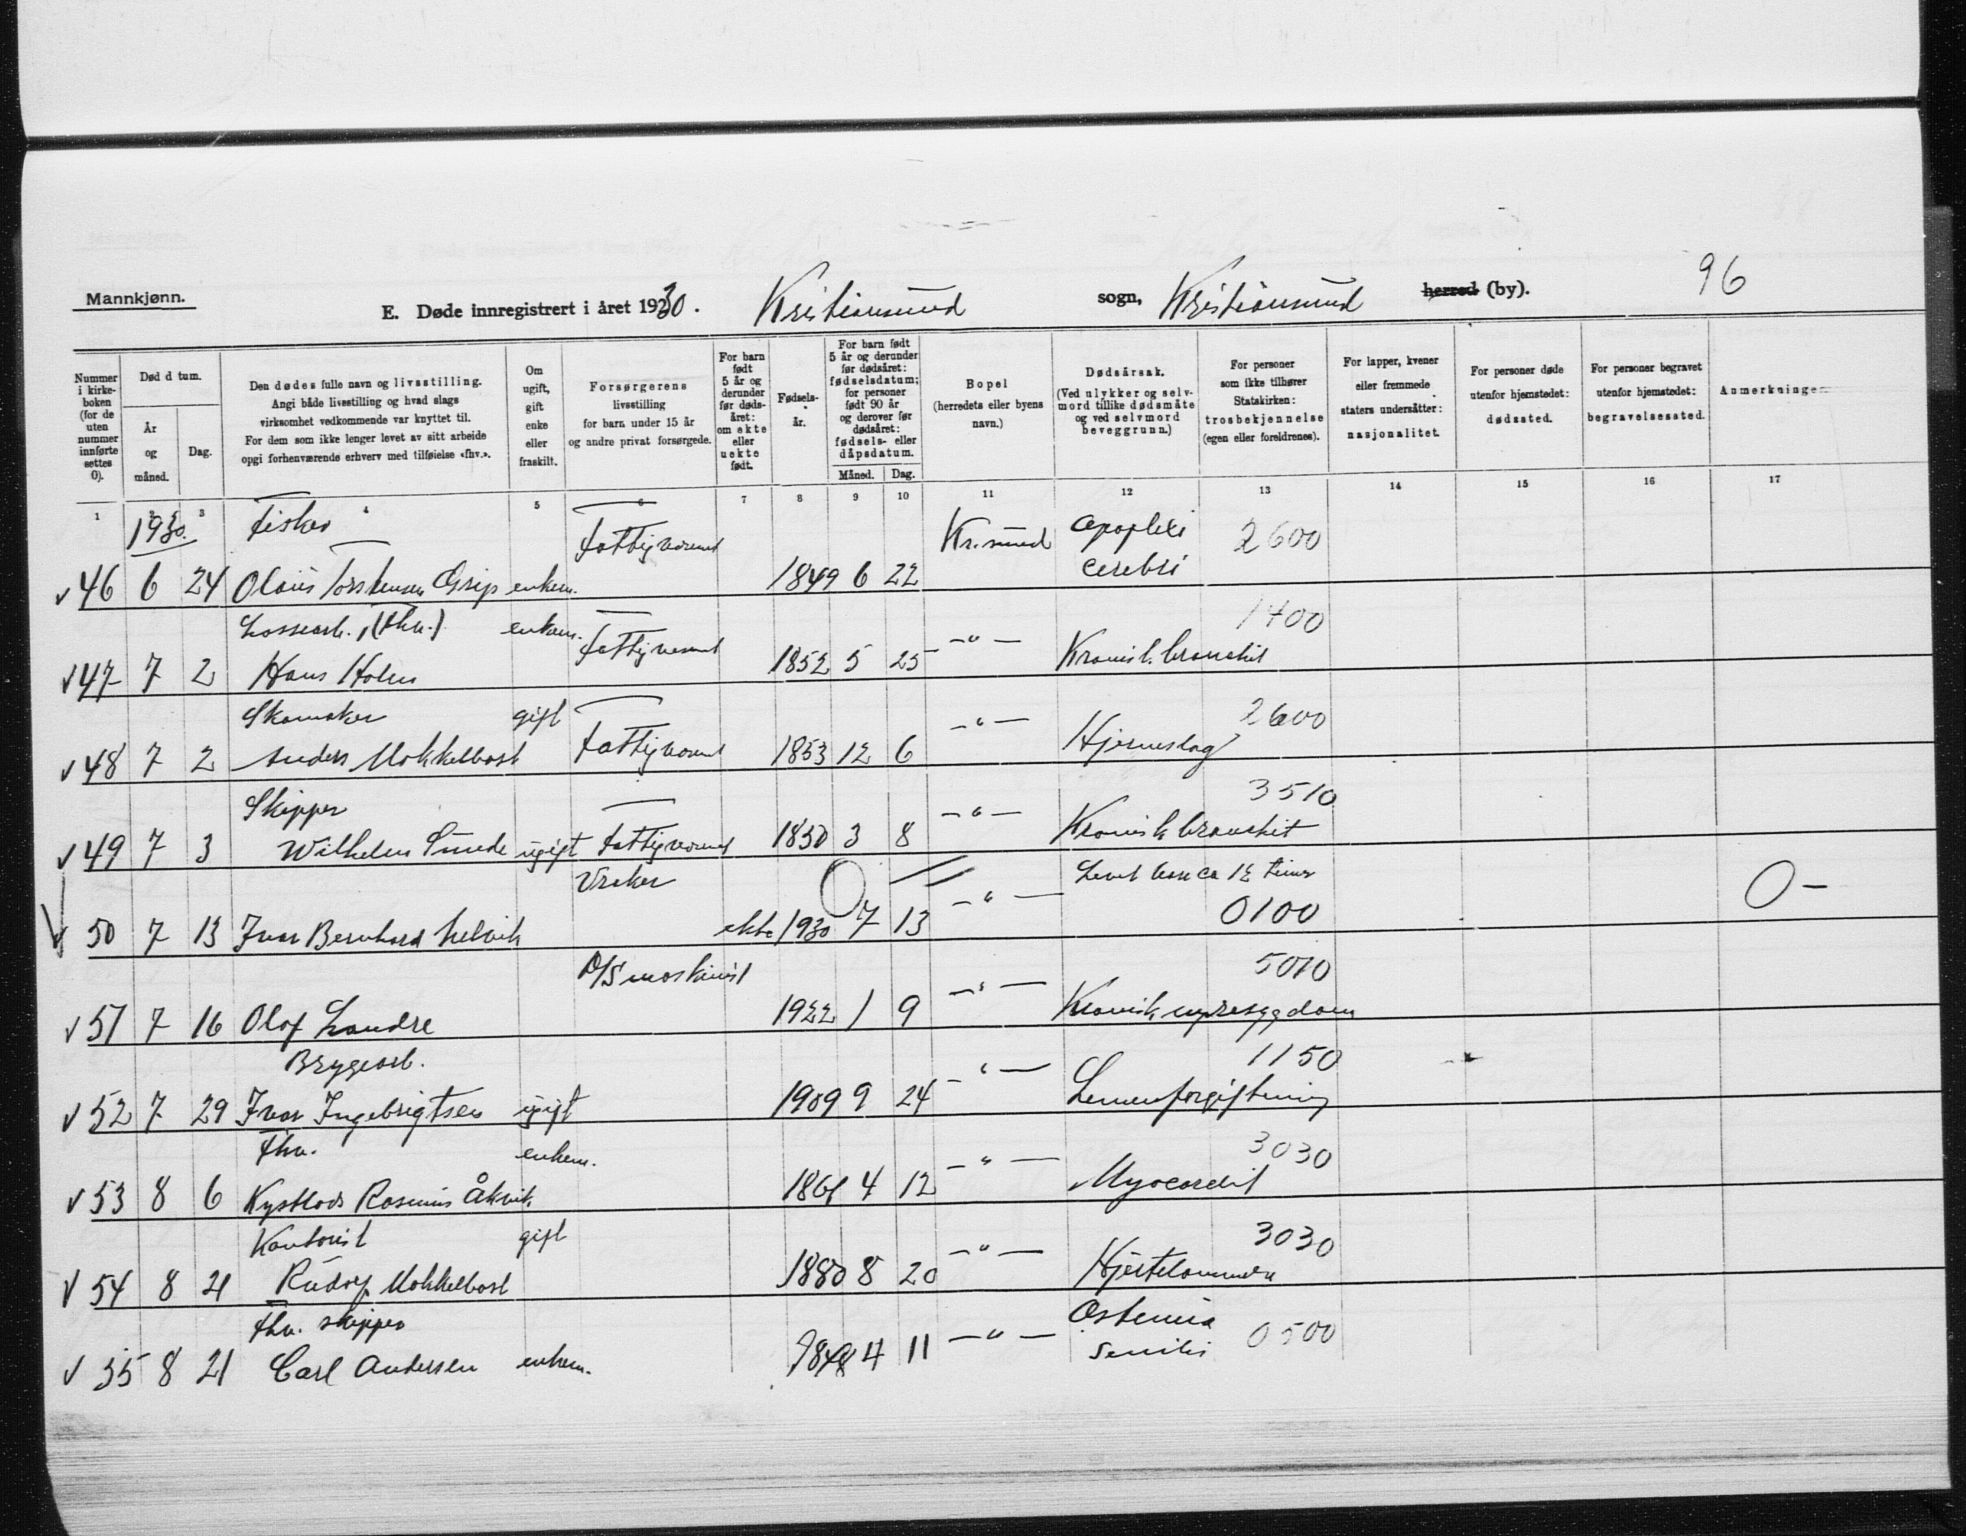 96
Mannkjønn.
E. Døde innregistrert i året 1930. Kristiansund sogn, Kristiansund herred (by).
Nummer i kirkeboken (for de uten nummer innførte settes 0).
Død d tum.
År og måned.
Dag.
Den dødes fulle navn og livsstilling. Angi både livsstilling og hvad slags virksomhet vedkommende var knyttet til. For dem som ikke lenger levet av sitt arbeide opgi forhenværende erhverv med tilføielse «fhv.».
Om ugift, gift enke eller fraskilt.
Forsørgerens livsstilling for barn under 15 år og andre privat forsørgede.
For barn født 5 år og derunder før dødsåret: om ekte eller uekte født.
Fødselsår.
For barn født 5 år og derunder før dødsåret: fødselsdatum; for personer født 90 år og derover før dødsåret: fødsels- eller dåpsdatum.
Måned. Dag.
Bopel (herredets eller byens navn.)
Dødsårsak. (Ved ulykker og selvmord tillike dødsmåte og ved selvmord beveggrunn.)
For personer som ikke tilhører Statskirken: trosbekjennelse (egen eller foreldrenes).
For lapper, kvener eller fremmede staters undersåtter: nasjonalitet.
For personer døde utenfor hjemstedet: dødssted.
For personer begravet utenfor hjemstedet: begravelsessted.
Anmerkninger
1 2 3 4 5 6 7 8 9 10 11 12 13 14 15 16 17
1930. Fisker Fattigvesenet Kr.sund Apopleksi 2600
46 6 24 Olaus Torstensen Grip enkem. 1849 6 22 cerebri
Lossearb., (fhv.) enkem. Fattigvesenet -"- 1400
47 7 2 Hans Holm 1852 5 25 Kronisk bronchit
Skomaker gift Fattigvesenet -"- 2600
48 7 2 Anders Mokkelbost 1853 12 6 Hjerneslag
Skipper -"- 3510
49 7 3 Wilhelm Smede ugift Fattigvesenet 1850 3 8 Kronisk bronchit
Vraker O // -"- Levet kun ca 1½ time O-
50 7 13 Ivar Bernhard Melvik ekte 1930 7 13 0100
D/S maskinist -"- 5010
51 7 16 Olaf Landre 1922 1 9 Kronisk nyresygdom
Bryggearb. -"- 1150
52 7 29 Ivar Ingebrigtsen ugift 1909 9 24 Lemenforgiftning
Fhv. enkem. -"- 3030
53 8 6 Kystlods Rasmus Åkvik 1861 4 12 Myocardit
Kontorist gift -"- 3030
54 8 21 Rudolf Mokkelbost 1880 8 20 Hjertelammelse
Fhv. skipper -"- Astenia 0500
55 8 21 Carl Andersen enkem. 1848 4 11 senilis